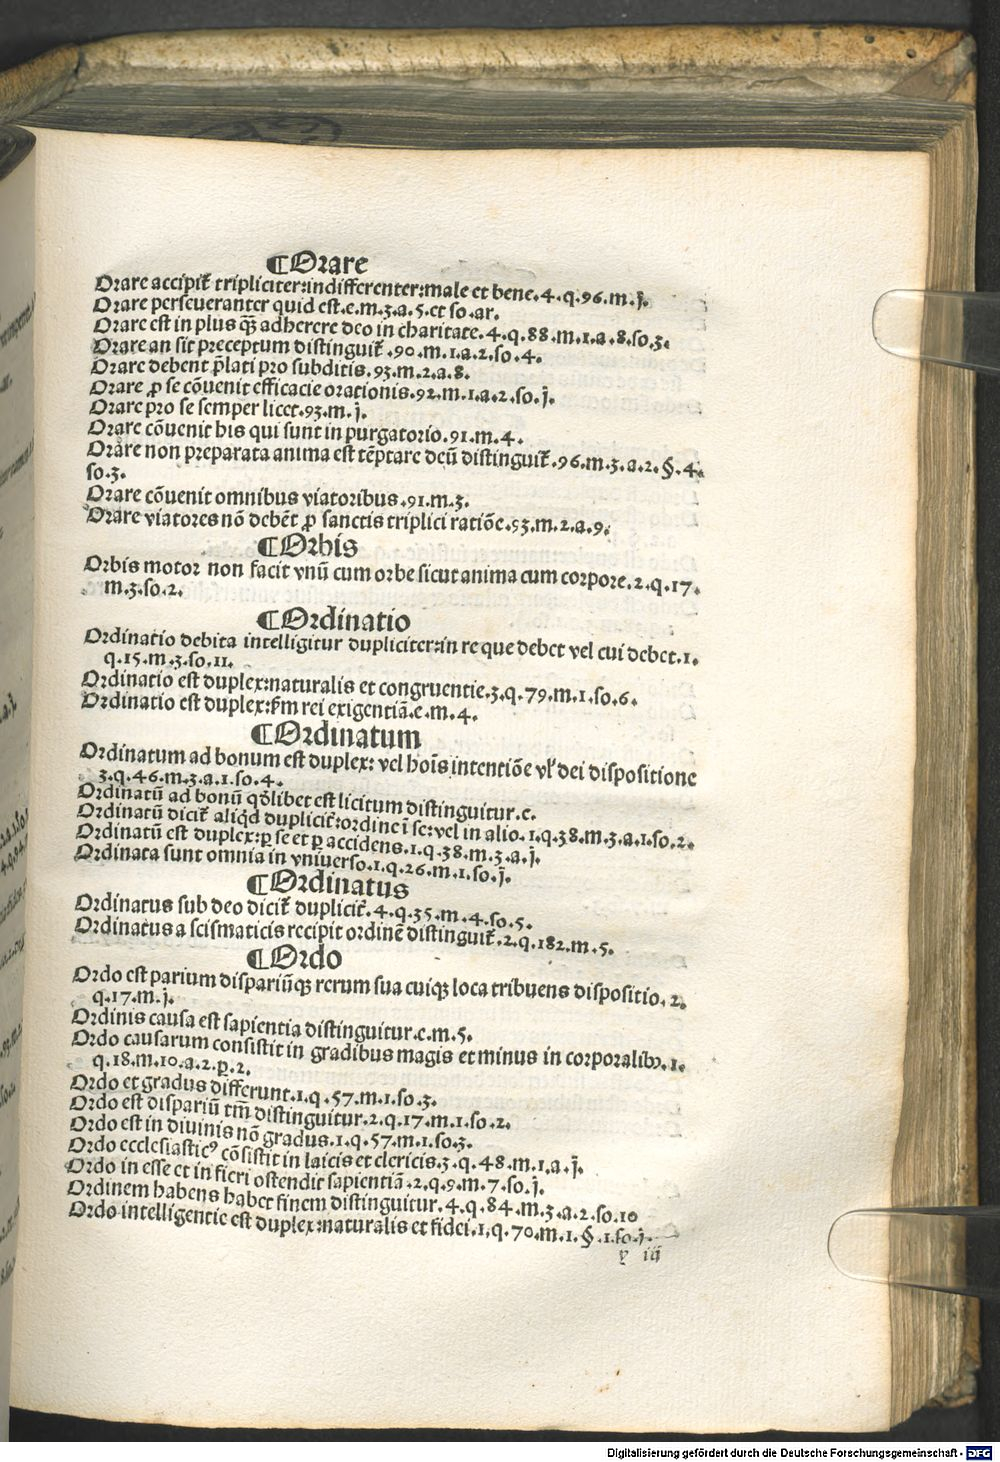 ¶Orare
Orare accipit̃ tripliciter:indifferenter:male et bene.4.q.96.m.j.
Orare perseueranter quid est.e.m.3.a.5.et so.ar.
Orare est in plus q̃ȝ adherere deo in charitate.4.q.88.m.1.a.8.so.3.
Orare an sit preceptum distinguit̃.90.m.1.a.2.so.4.
Orare debent p̃lati pro subditis.93.m.2.a.8.
Orare ꝓ se cõuenit efficacie orationis.92.m.1.a.2.so.j.
Orare pro se semper licet.93.m.j.
Orare cõuenit his qui sunt in purgatorio.91.m.4.
Orare non preparata anima est tẽptare deũ distinguit̃.96.m.3.a.2.§.4.
so.3.
Orare cõuenit omnibus viatoribus.91.m.3.
Orare viatores nõ debẽt ꝓ sanctis triplici ratiõe.93.m.2.a.9.
¶Orbis
Orbis motor non facit vnũ cum orbe sicut anima cum corpore.2.q.17.
m.3.so.2.
¶Ordinatio
Ordinatio debita intelligitur dupliciter:in re que debet vel cui debet.1.
q.15.m.3.so.11.
Ordinatio est duplex:naturalis et congruentie.3.q.79.m.1.so.6.
Ordinatio est duplex:ẜm rei exigentiã.e.m.4.
¶Ordinatum
Ordinatum ad bonum est duplex: vel hoĩs intentiõe vl̉ dei dispositione
3.q.46.m.3.a.1.so.4.
Ordinatũ ad bonũ qđlibet est licitum distinguitur.e.
Ordinatũ dicit̃ aliqđ duplicit̃:ordine ĩ se:vel in alio.1.q.38.m.3.a.1.so.2.
Ordinatũ est duplex:ꝑ se et ꝑ accidens.1.q.38.m.3.a.j.
Ordinata sunt omnia in vniuerso.1.q.26.m.1.so.j.
¶Ordinatus
Ordinatus sub deo dicit̃ duplicit̃.4.q.35.m.4.so.5.
Ordinatus a scismaticis recipit ordinẽ distinguit̃.2.q.182.m.5.
¶Ordo
Ordo est parium dispariũqȝ rerum sua cuiqȝ loca tribuens dispositio.2.
q.17.m.j.
Ordinis causa est sapientia distinguitur.e.m.5.
Ordo causarum consistit in gradibus magis et minus in corporalibꝰ.1.
q.18.m.10.a.2.p.2.
Ordo et gradus differunt.1.q.57.m.1.so.3.
Ordo est dispariũ tm̃ distinguitur.2.q.17.m.1.so.2.
Ordo est in diuinis nõ gradus.1.q.57.m.1.so.3.
Ordo ecclesiasticꝰ cõsistit in laicis et clericis.3.q.48.m.1.a.j.
Ordo in esse et in fieri ostendit sapientiã.2.q.9.m.7.so.j.
Ordinem habens habet finem distinguitur.4.q.84.m.3.a.2.so.10
Ordo intelligentie est duplex:naturalis et fidei.1.q.70.m.1.§.1.so.j.
y iij
Digitalisierung gefördert durch die Deutsche Forschungsgemeinschaft - DFG